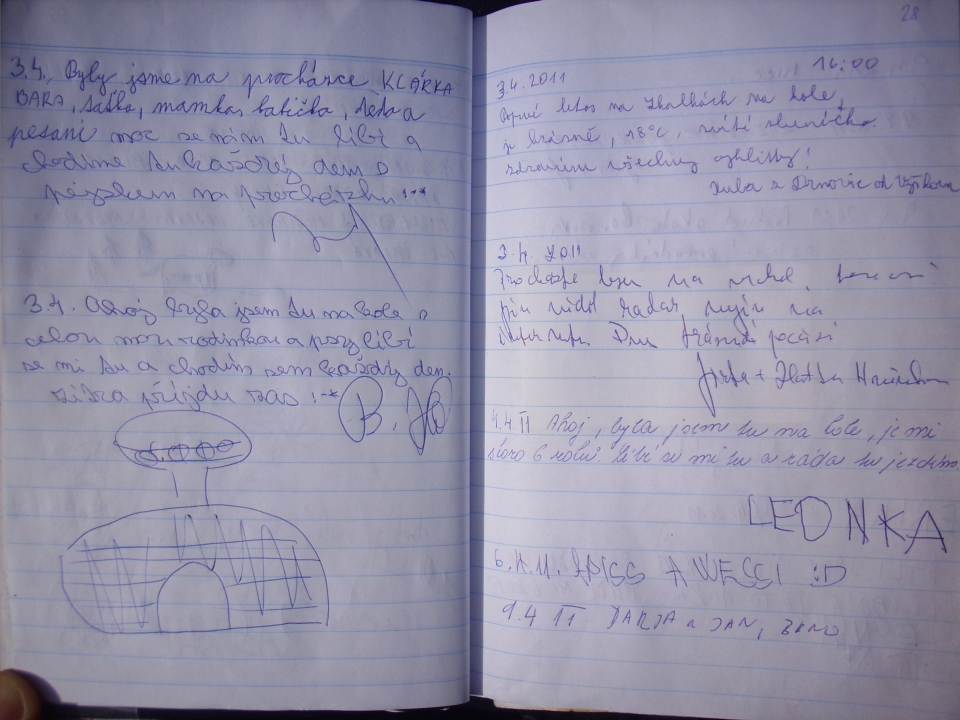 3.4. Byly jsme na procházce KLÁRKA
BÁRA, taťka, mamka, babička, děda a
pejsani moc se nám tu líbí a
chodíme tu každý den s
pejskem na procházku :-*
3.4. Ahoj byla jsem tu na kole s
celou mou rodinkou a psy líbí
se mi tu a chodím sem každý den.
zítra přijdu zas :-*
B. 
28
3.4.2011 16:00
letos na Zkalkách na kole,
je krásně, 18°C, svítí sluníčko.
zdravím všechny
Kuba z Drnovic od Vyškova
3.4. 2011
na
vidět radar nejen na
internetu. Dnes krásné počasí
Jirka + Zlatka
4.4.11 Ahoj, byla jsem tu na kole, je mi
skoro 6 roků. Líbí se mi tu a ráda tu jezdím
LEONKA
6.4.11. A WESSI :D
9.4 11 DARJA a JAN, BRNO